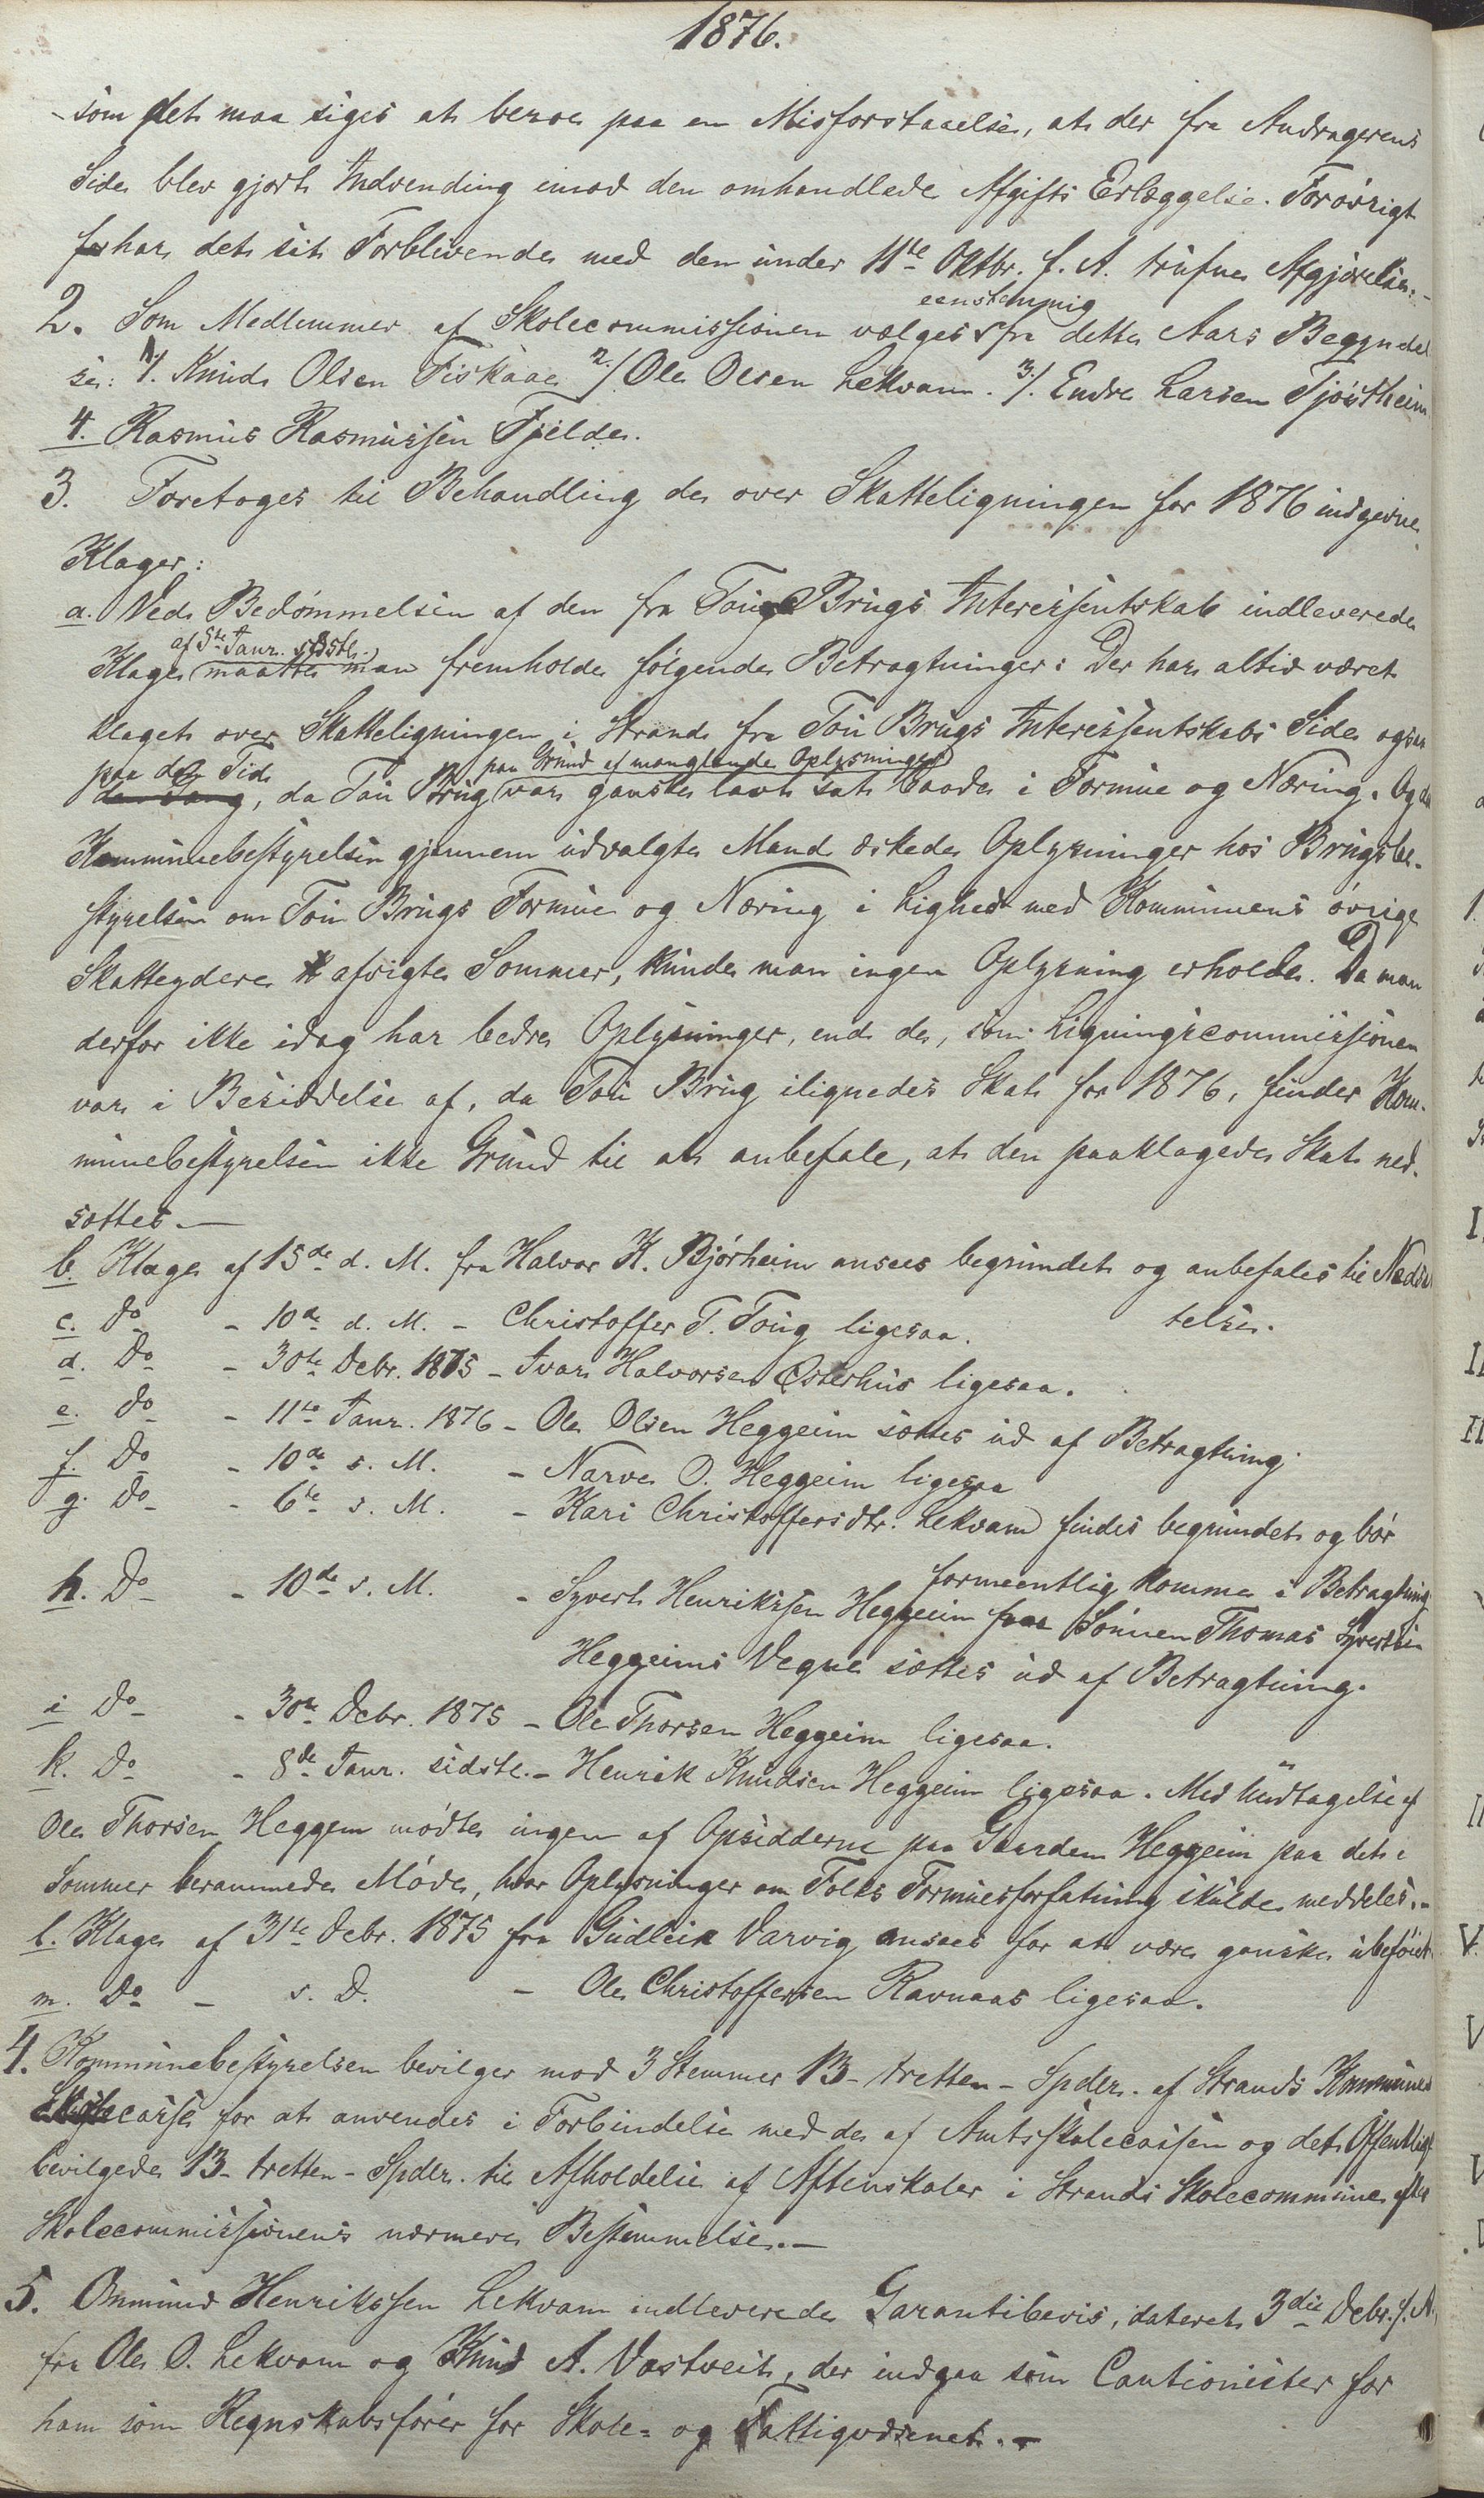 1876.
som det maa siges at beroe paa en Misforstaaelse, at der fra Andragerens
Side blev gjort Indvending imod den omhandlede Afgifts Erlæggelse. Forøvrigt
har det sit Forblivende med den under 11te Oktbr. f. A. trufne Afgjørelse.-
eenstemmig
2. Som Medlemmer af Skolecommissionen vælges fra dette Aars Begyndel
se: 1/. Knud Olsen Fiskaae 2/ Ole Olsen Lekvam. 3/. Endre Larsen Tjøstheim
4. Rasmus Rasmussen Fjelde.
3. Foretoges til Behandling de over Skatteligningen for 1876 indgivne
Klager:
a. Ved Bedømmelsen af den fra Toug Brugs Interessentskab indleverede
af 5te Janr. sidstl.
Klage maatte man fremholde følgende Betragtninger: Der har altid været
klaget over Skatteligningen i Strand fra Tou Brugs Interessentskabs Side ogsaa
paa den Tid paa Grund af manglende Oplysninger
den Gang, da Tou Brug var ganske lavt sat baade i Formue og Næring. Og da
Kommunebestyrelsen gjennem udvalgte Mænd æskede Oplysninger hos Brugsbe-
styrelsen om Tou Brugs Formue og Næring i Lighed med Kommunens øvrige
Skatteydere afvigte Sommer, kunde man ingen Oplysning erholde. Da man
derfor ikke idag har bedre Oplysninger, end de, som Ligningscommissionen
var i Besiddelse af, da Tou Brug ilignedes Skat for 1876, finder Kom-
munebestyrelsen ikke Grund til at anbefale, at den paaklagede Skat ned-
sættes.-
b. Klage af 15de d. M. fra Halvor K. Bjørheim ansees begrundet og anbefales til Nedsæt
telse.
c. Do - 10de d. M. - Christoffer T. Toug ligesaa.
d. Do - 30te Debr. 1875 - Ivar Halvorsen Østerhus ligesaa.
e. Do - 11te Janr. 1876 - Ole Olsen Heggeim sættes ud af Betragtning.
f. Do - 10de s. M. - Narve O. Heggeim ligesaa
g. Do - 6te s. M. - Kari Christoffersdtr. Lekvam findes begrundet og bør
formeentlig komme i Betragtning
h. Do - 10de s. M. - Syvert Henriksen Heggeim paa Sønnen Thomas Syvertsen
Heggeims Vegne sættes ud af Betragtning.
i Do - 30te Debr. 1875 - Ole Thorsen Heggeim ligesaa.
k. Do - 8de Janr. sidstl. - Henrik Knudsen Heggeim ligesaa. Med Undtagelse af
Ole Thorsen Heggem mødte ingen af Opsidderne paa Gaarden Heggeim paa det i
Sommer berammede Møde, hvor Oplysninger om Folks Formuesforfatning skulde meddeles.-
l. Klage af 31te Debr. 1875 fra Gudleik Varvig ansees for at være ganske ubeføiet.
m. Do - s. D. - Ole Christoffersen Ravnaas ligesaa.
4. Kommunebestyrelsen bevilger mod 3 Stemmer 13 - tretten - Spdlr. af Strands Kommunes
Skolecasse for at anvendes i Forbindelse med de af Amtsskolecassen og det Offentlige
bevilgede 13 - tretten - Spdlr. til Afholdelse af Aftenskoler i Strands Skolecommune efter
Skolecommissionens nærmere Bestemmelse.-
5. Ommund Henriksen Lekvam indleverede Garantibevis, dateret 3die Debr. f. A.
fra Ole O. Lekvam og Knud A. Vastveit, der indgaa som Cautionister for
ham som Regnskabsfører for Skole- og Fattigvæsenet.-